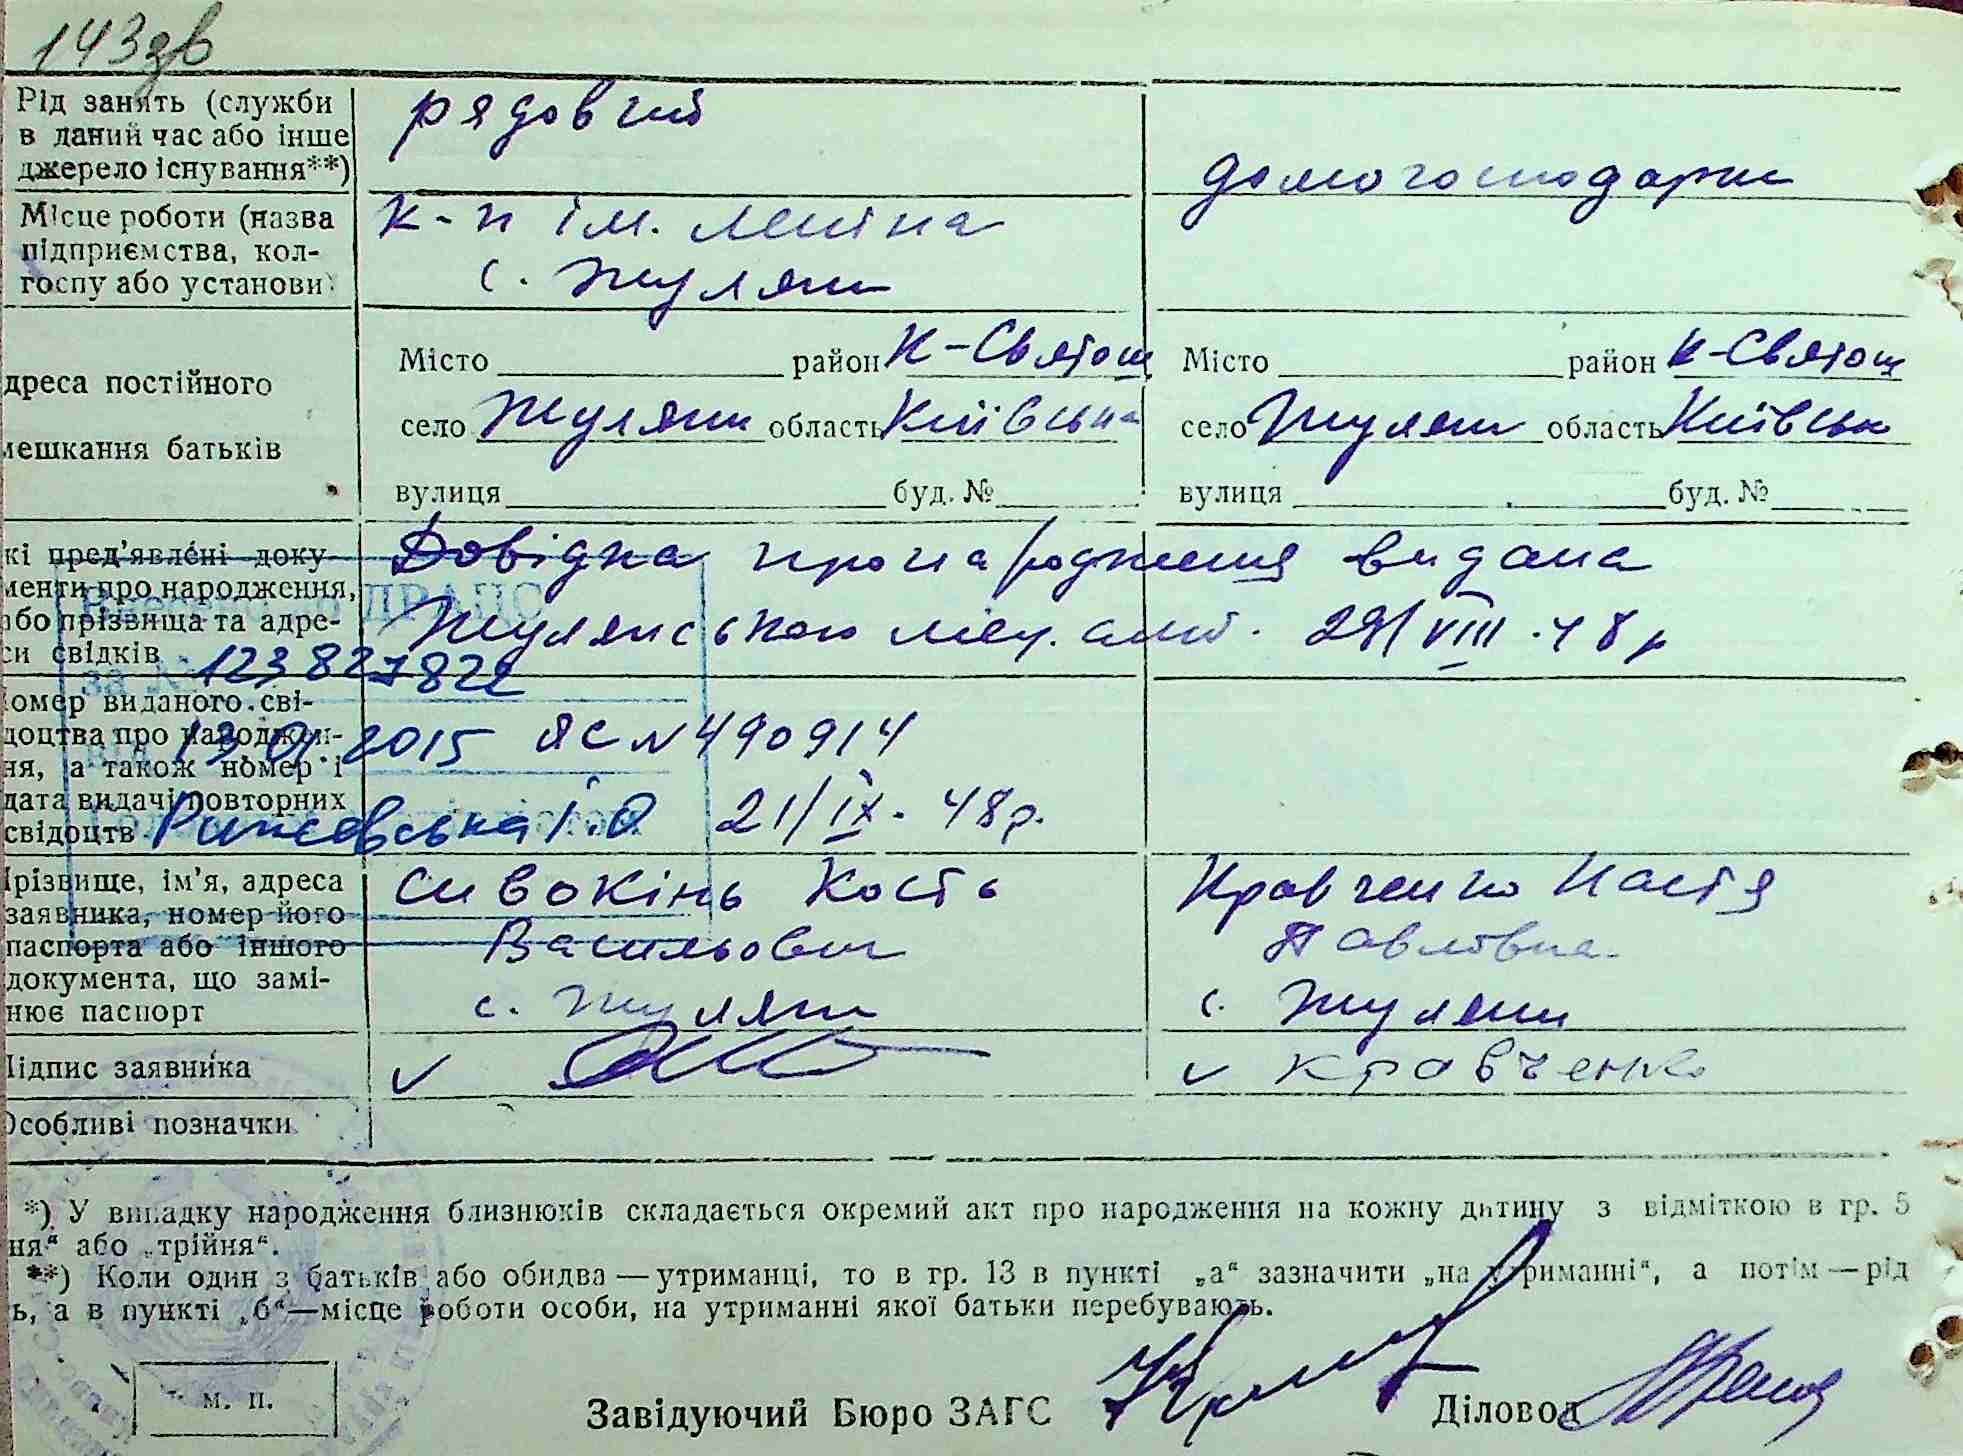 143зв
Рід занять (служби
в даний час або інше
джерело існування**)
рядовий
домогосподарка
Місце роботи (назва
підприємства, кол-
госпу або установи)
к-п ім. Леніна
с. Жуляни
дреса постійного
мешкання батьків
Місто район К-Святош
село Жуляни область Київська
вулиця буд. №
Місто район К-Святош
село Жуляни область Київськ
вулиця буд. №
кі пред'явлені доку-
менти про народження,
або прізвища та адре-
си свідків
Довідка про народження видана
Жулянською мед. амб. 29/VIII.48р
Внесено до ДРАЦС
за № 123827822
від 13.01.2015
Рижевська І.О
омер виданого сві-
доцтва про народжен-
ня, а також номер і
дата видачі повторних
свідоцтв
ЯС № 490914
21/IX.48р.
Прізвище, ім'я, адреса
заявника, номер його
паспорта або іншого
документа, що замі-
нює паспорт
Сивокінь Кость
Васильович
с. Жуляни
Кравченко Настя
Павлівна.
с. Жуляни
Підпис заявника
v
v Кравченко
Особливі позначки
*) У випадку народження близнюків складається окремий акт про народження на кожну дитину з відміткою в гр. 5
ня“ або „трійня“.
**) Коли один з батьків або обидва — утриманці, то в гр. 13 в пункті „а“ зазначити „на утриманні“, а потім — рід
ь, а в пункті „б“—місце роботи особи, на утриманні якої батьки перебувають.
м. п.
Завідуючий Бюро ЗАГС
Діловод